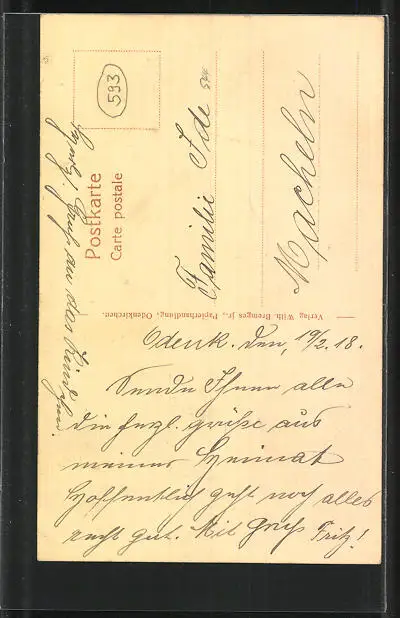 593
Postkarte
Carte postale
Familie Ide
Macheln
Verlag Wilh. Bremges jr., Papierhandlung, Odenkirchen.
Odenk. den, 19/2. 18.
Sende Ihnen alle
die herzl. grüße aus
meiner Heimat
Hoffentlich geht noch alles
recht gut. Mit Gruß Fritz!
Gruß an das